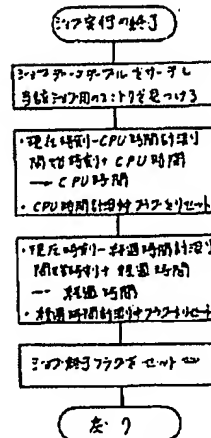 ジョブ実行の終了
ジョブデータテーブルをサーチし
当該ジョブ用のエントリを見つける
・現在時刻−CPU時間計測
開始時刻+CPU時間
→CPU時間
・CPU時間計測中フラグをリセット
・現在時刻−経過時間計測
開始時刻+経過時間
→経過時間
・経過時間計測中フラグをリセット
ジョブ終了フラグをセット
戻り